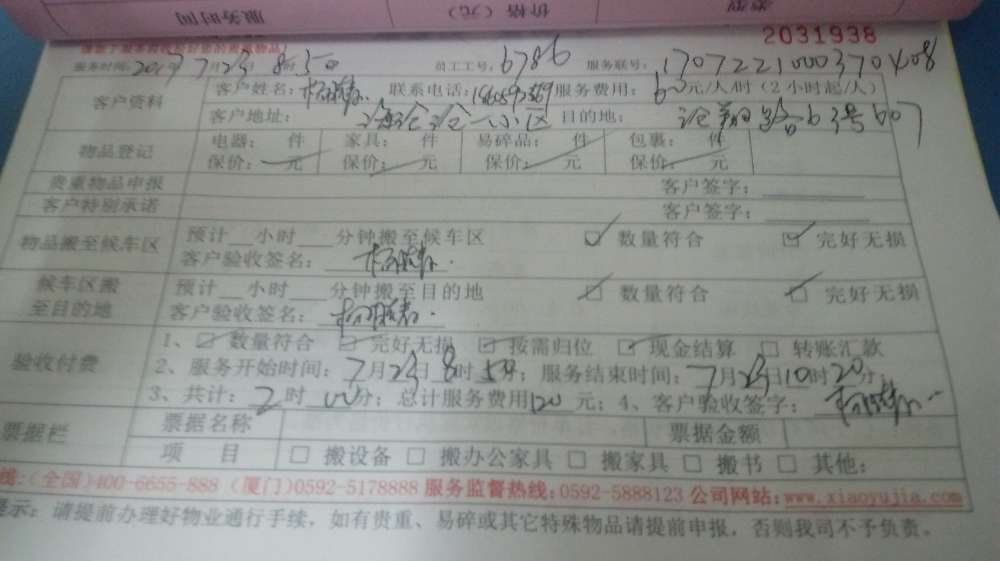 服务时间 价格(元) 类型
2031938
请您于服务前收好您的贵重物品)
服务时间:2017年7月23日8时50 员工工号:6786 服务联号:1307221000370408
客户资料 客户姓名: 联系电话: 服务费用:6 元/人/时(2小时起/人)
客户地址: 小区 目的地: 63号607
物品登记 电器: 件 家具: 件 易碎品: 件 包裹: 件
保价: 元 保价: 元 保价: 元 保价: 元
贵重物品申报 客户签字:
客户特别承诺 客户签字:
物品搬至候车区 预计 小时 分钟搬至候车区 ☑ 数量符合 ☑ 完好无损
客户验收签名:
候车区搬至目的地 预计 小时 分钟搬至目的地 ☑ 数量符合 ☑ 完好无损
客户验收签名:
验收付费 1、☑ 数量符合 ☑ 完好无损 ☑ 按需归位 ☑ 现金结算 □ 转账汇款
2、服务开始时间:7月23日8时5 分;服务结束时间:7月23日10时20分;
3、共计:2时00分;总计服务费用120元;4、客户验收签字:
票据栏 票据名称 票据金额
项 目 □ 搬设备 □ 搬办公家具 □ 搬家具 □ 搬书 □ 其他:
线:(全国)400-6655-888 (厦门)0592-5178888 服务监督热线:0592-5888123 公司网站:www.xiaoyujia.com
提示:请提前办理好物业通行手续,如有贵重、易碎或其它特殊物品请提前申报,否则我司不予负责。